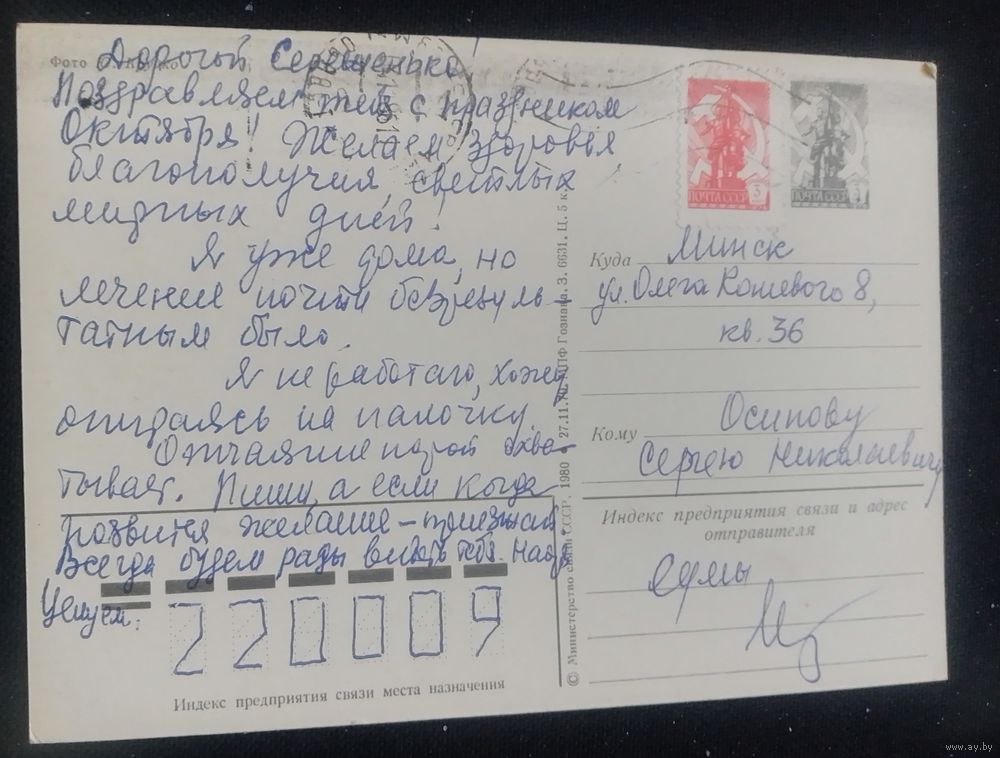 Фото
Дорогой Сереженька!
Поздравляем тебя с праздником
Октября! Желаем здоровья,
благополучия, светлых
мирных дней!
Я уже дома, но
лечение почти безрезуль-
татным было.
Я не работаю, хожу
опираясь на палочку.
Отчаяние порой охва-
тывает. Пиши, а если когда
появится желание – приезжай.
Всегда будем рады видеть тебя.
Целуем.
220009
Индекс предприятия связи места назначения
© Министерство связи СССР. 1980 27.11.79. МПФ Гознака. З. 6631. Ц. 5 к.
ПОЧТА СССР 3
ПОЧТА СССР
Куда Минск
ул. Олега Кошевого 8,
кв. 36
Кому Осипову
Сергею Николаевичу
Индекс предприятия связи и адрес
отправителя
www.ay.by